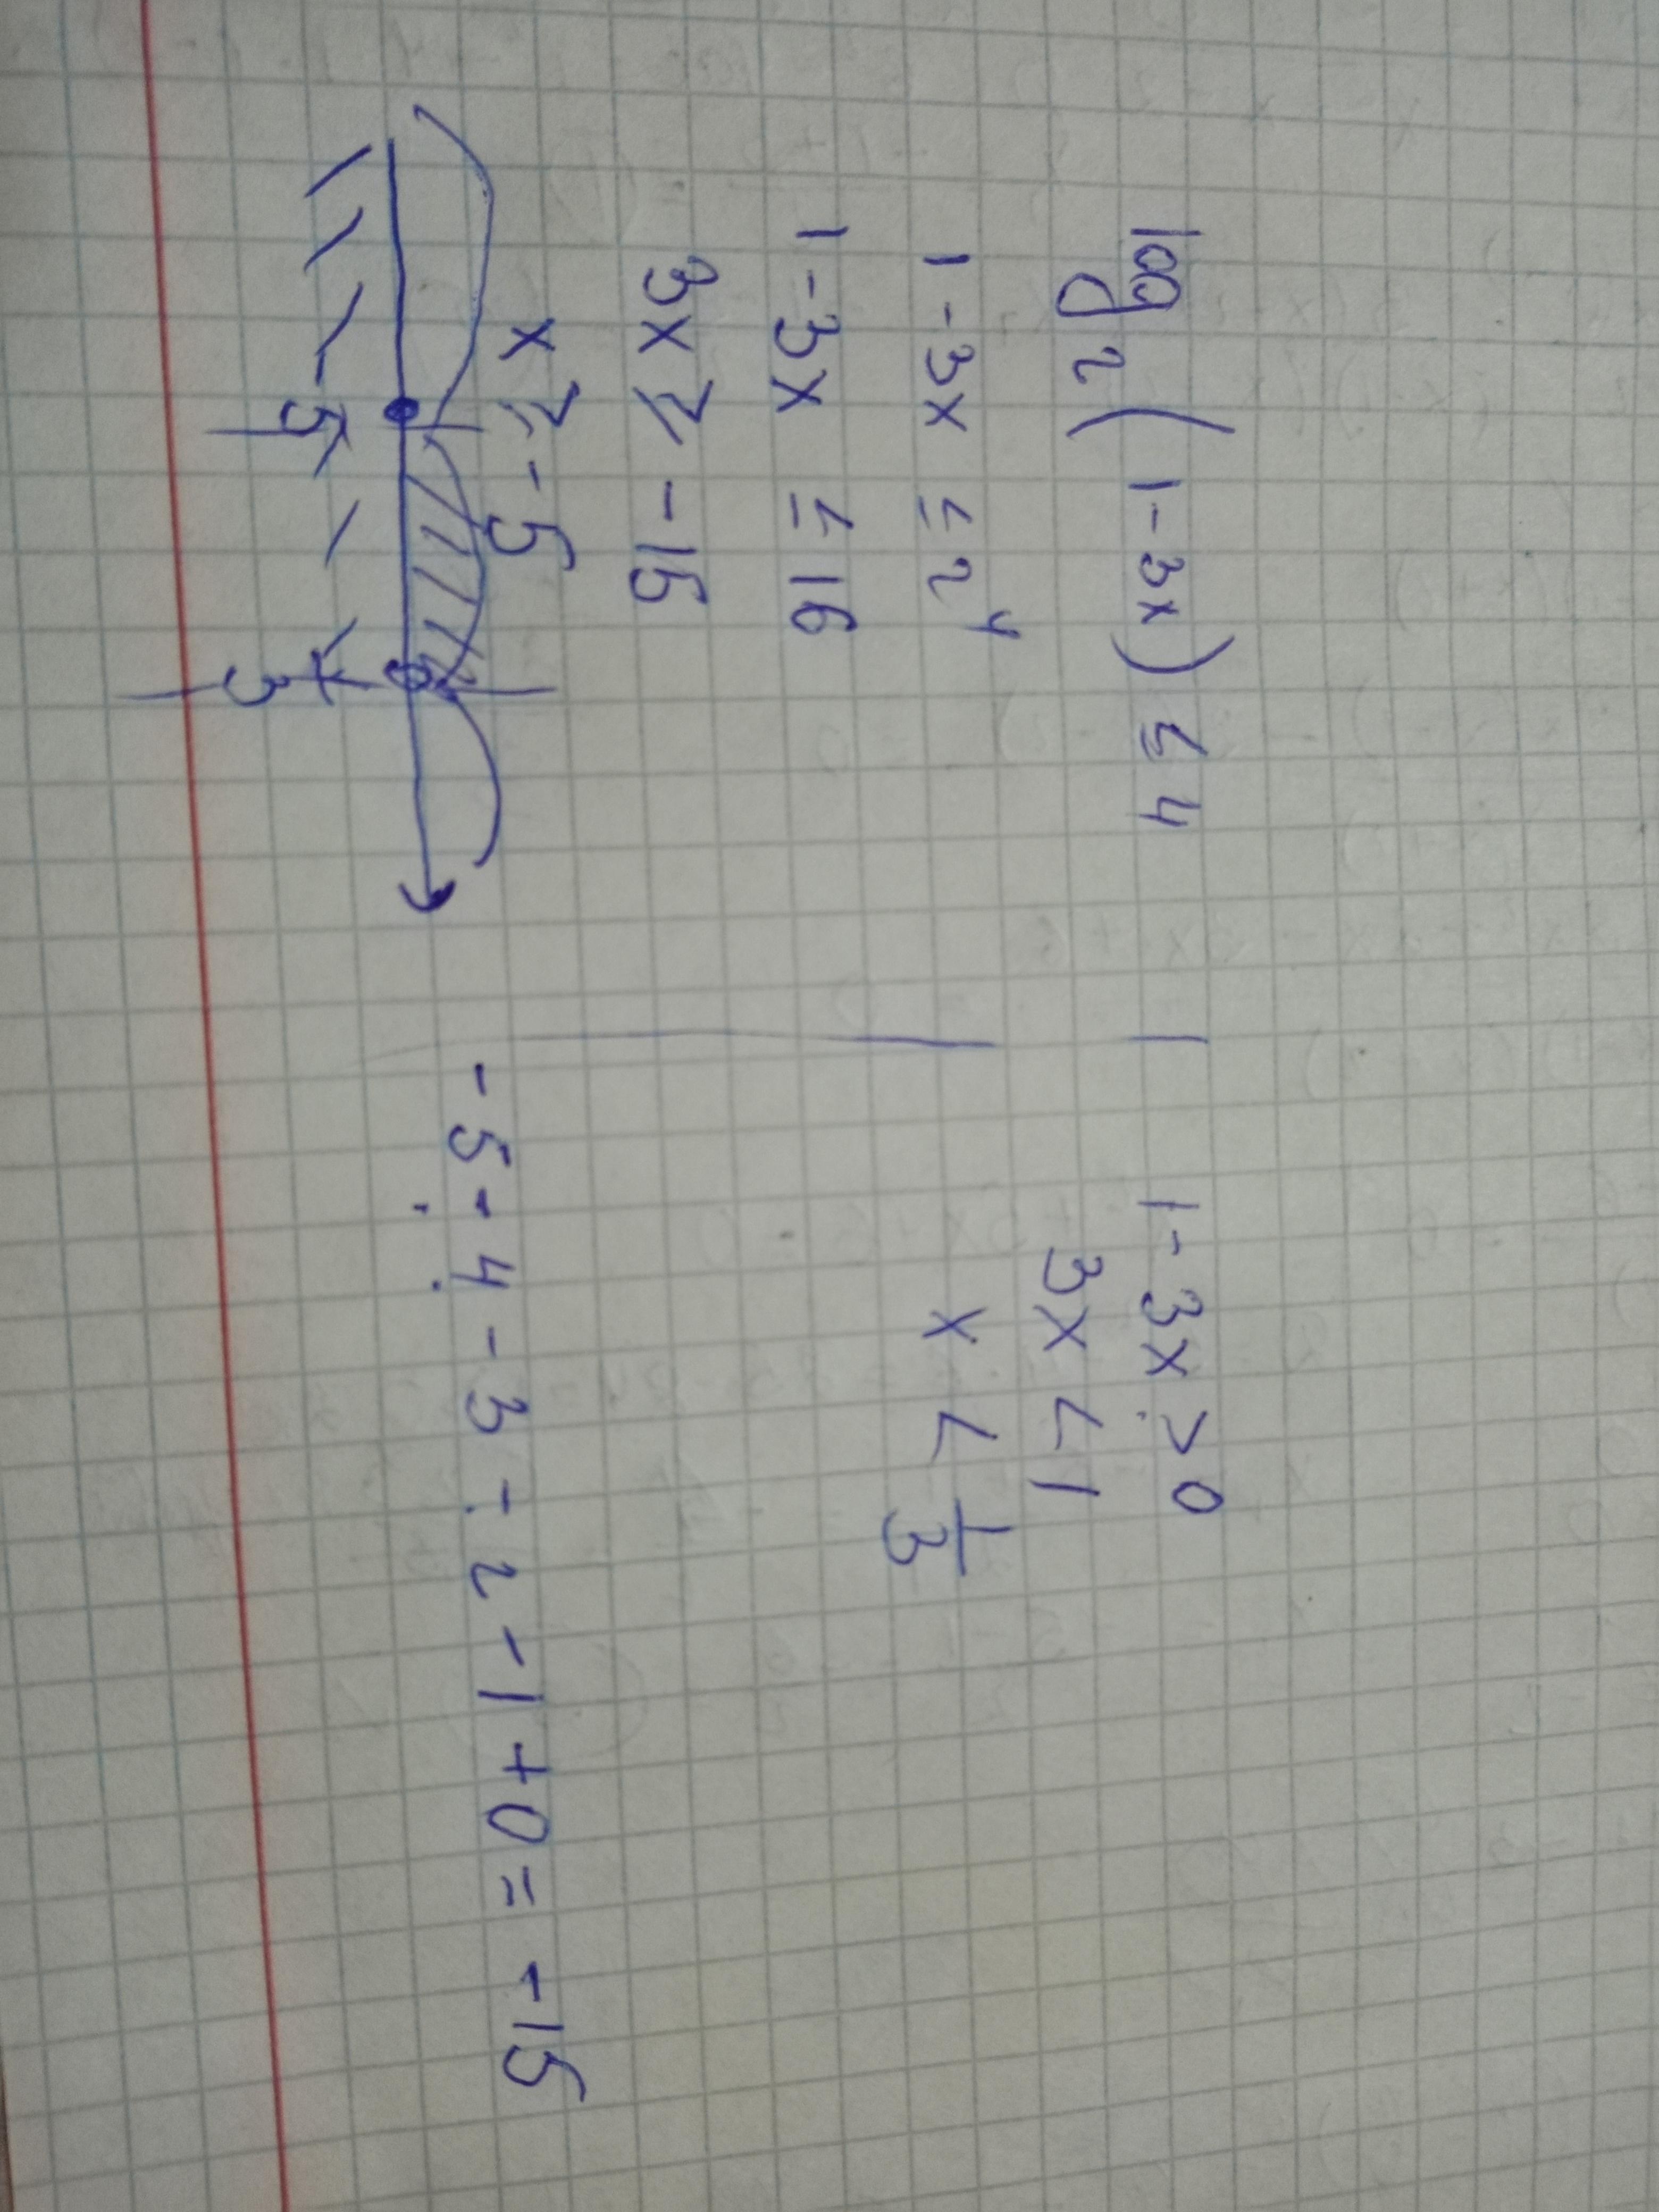 log₂(1-3x) ≤ 4
1-3x ≤ 2⁴
1-3x ≤ 16
3x ≥ -15
x ≥ -5
-5 1/3
1-3x > 0
3x < 1
x < 1/3
-5-4-3-2-1+0= -15